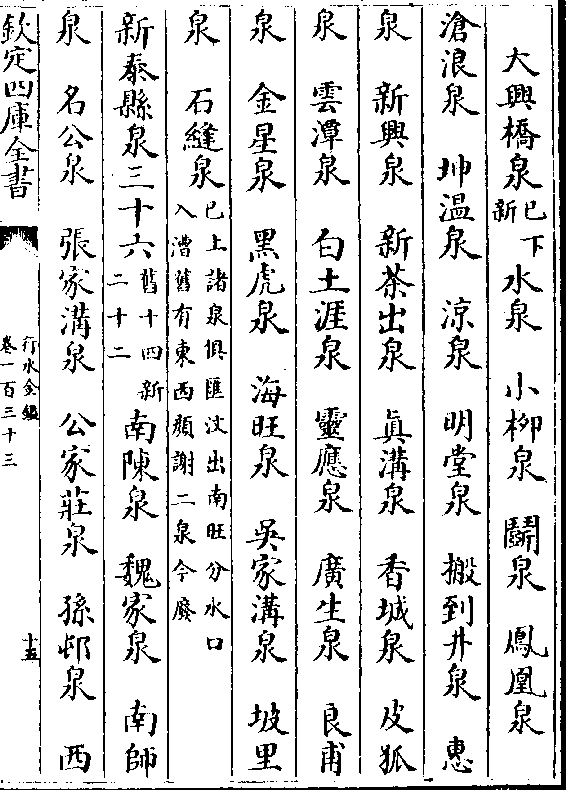 大興橋泉已下新水泉　小柳泉　鬭泉　鳳凰泉
滄浪泉　坤温泉　涼泉　明堂泉　搬到井泉　惠
泉　新興泉　新茶出泉　眞溝泉　香城泉　皮狐
泉　雲潭泉　白土涯泉　靈應泉　廣生泉　良甫
泉　金星泉　黑虎泉　海旺泉　吳家溝泉　坡里
泉　石縫泉已上諸泉俱匯汶出南旺分水口入漕舊有東西顔謝二泉今廢
新泰縣泉三十六舊十四新二十二南陳泉　魏家泉　南師
泉　名公泉　張家溝泉　公家莊泉　孫邨泉　西
欽定四庫全書
行水金鑑
卷一百三十三
十五